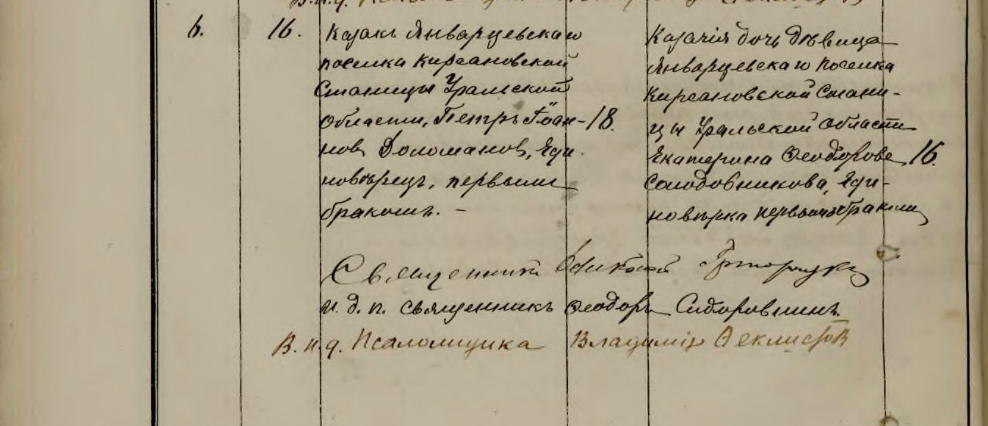 6. 16.
Казакъ Январцевскаго
поселка Кирсановской
Станицы Уральской
Области, Петръ Іоан- 18.
новъ Доломановъ, Еди-
новѣрецъ, первымъ
бракомъ. -
Казачія дочь дѣвица
Январцевскаго поселка
Кирсановской Стани-
цы Уральской Области
Екатерина Ѳеодорова 16.
Солодовникова, Еди-
новѣрка первымъ бракомъ
Священникъ
И. д. п. священникъ Ѳеодоръ Сидоровнинъ
В. и. д. Псаломщика Владиміръ Ѳеклистовъ